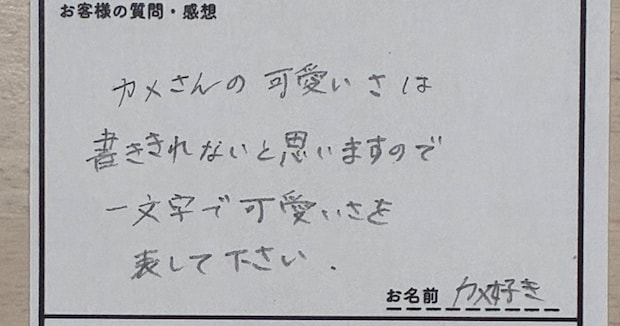 お客様の質問・感想
カメさんの可愛いさは
書ききれないと思いますので
一文字で可愛いさを
表して下さい.
お名前 カメ好き